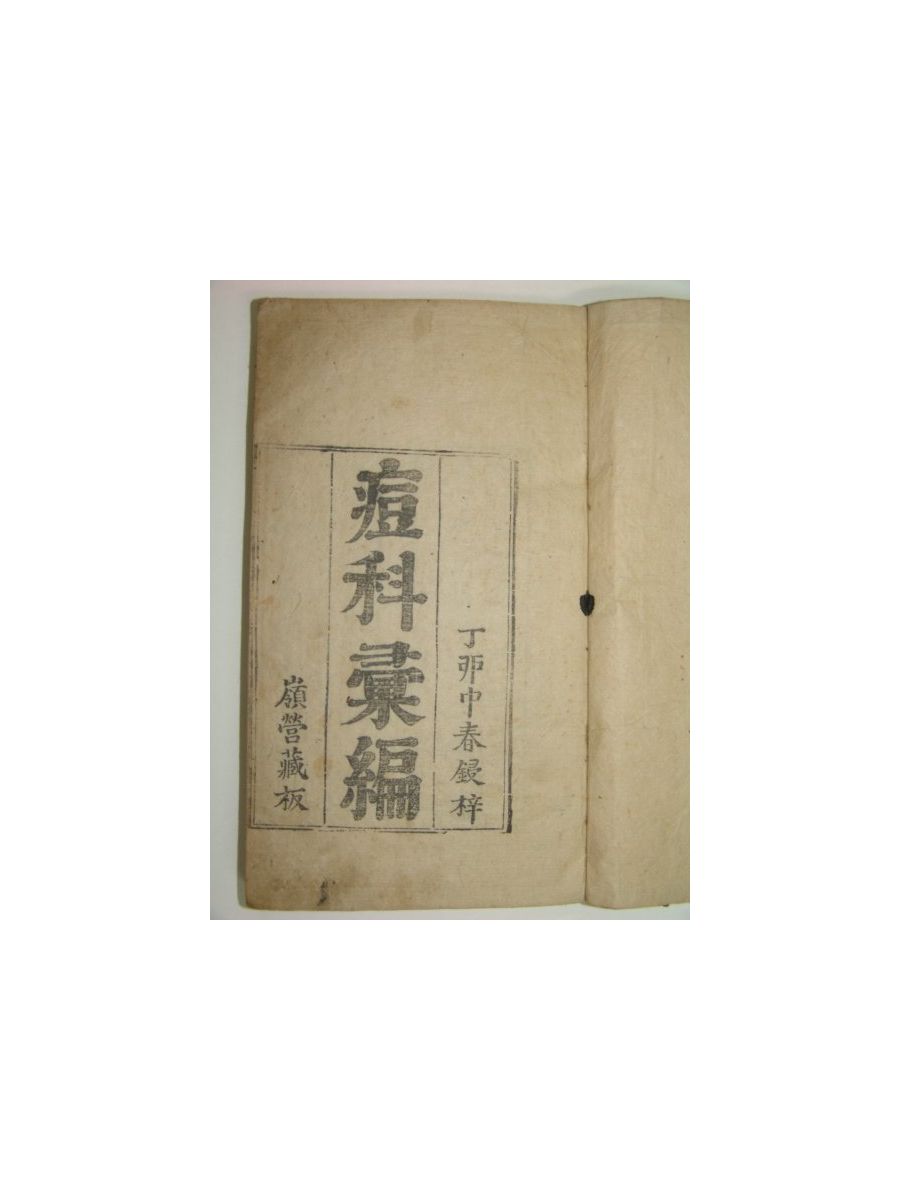 丁卯中春鋟梓
痘科彙編
嶺營藏板